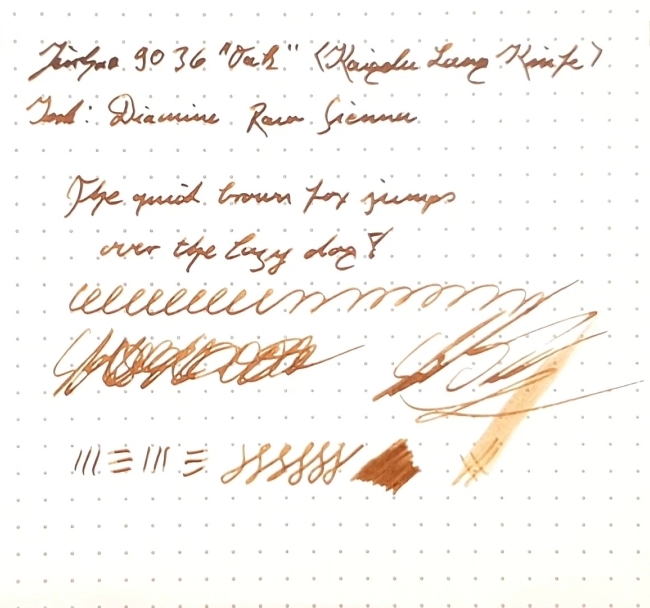 Jinhao 9036 "Oak" (Kaigelu Long Knife)
Ink: Diamine Raw Sienna
The quick brown fox jumps
over the lazy dog!